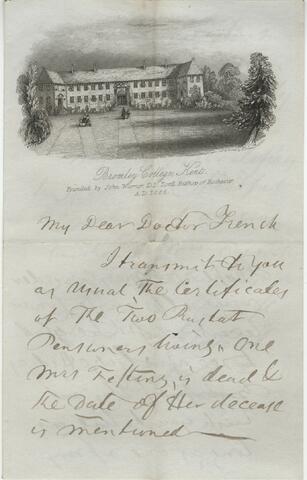 Bromley College, Kent.
Founded by John Warner D.D. Lord Bishop of Rochester
A.D. 1666.
My Dear Doctor French
I transmit to you
as usual the Certificates
of the Two Rustat
Pensioners living. One
Mrs Festing, is dead &
the Date of Her decease
is mentioned